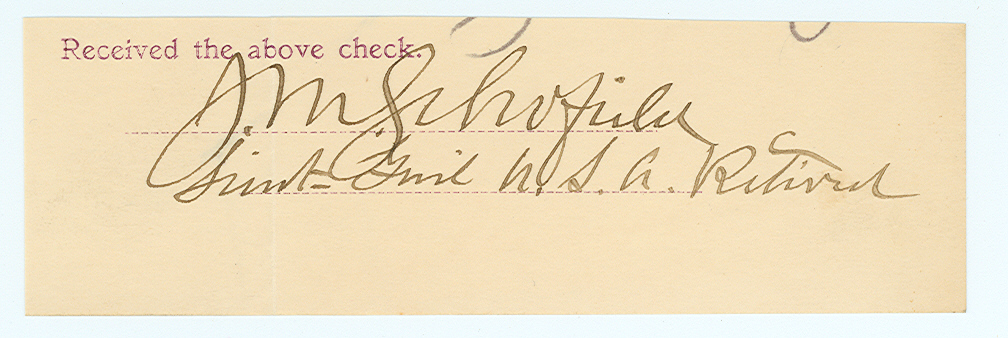 Received the above check.
J. M. Schofield
Lieut-Genl U. S. A. Retired